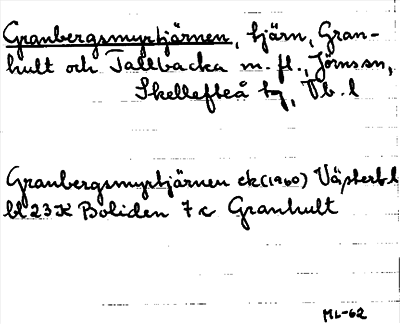 Granbergsmyrtjärnen, tjärn, Gran-
hult och Tallbacka m. fl., Jörns sn,
Skellefteå tg, Vb. l
Granbergsmyrtjärnen ek (1960) Västerb. l
bl 23 K Boliden 7 c Granhult
ML-62